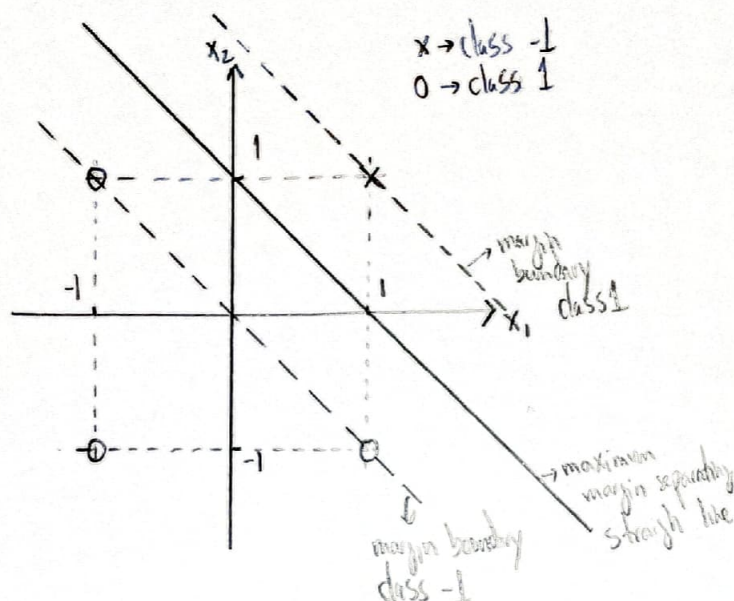 x → class -1
0 → class 1
x2
1
-1
1
x1
-1
margin
boundary
class 1
maximum
margin separating
straigh line
margin boundary
class -1